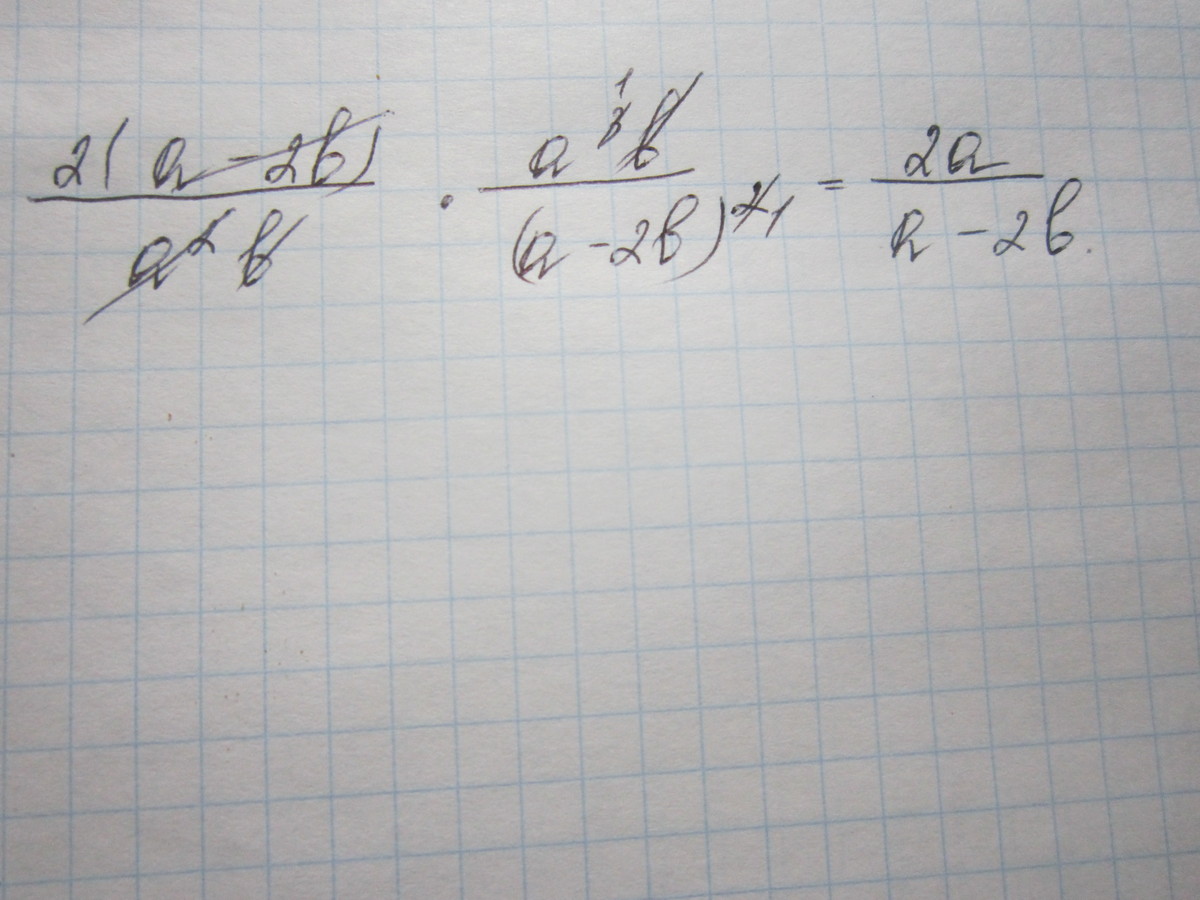 2(a - 2b)/(a²b) · a³¹b/(a - 2b)²¹ = 2a/(a - 2b).